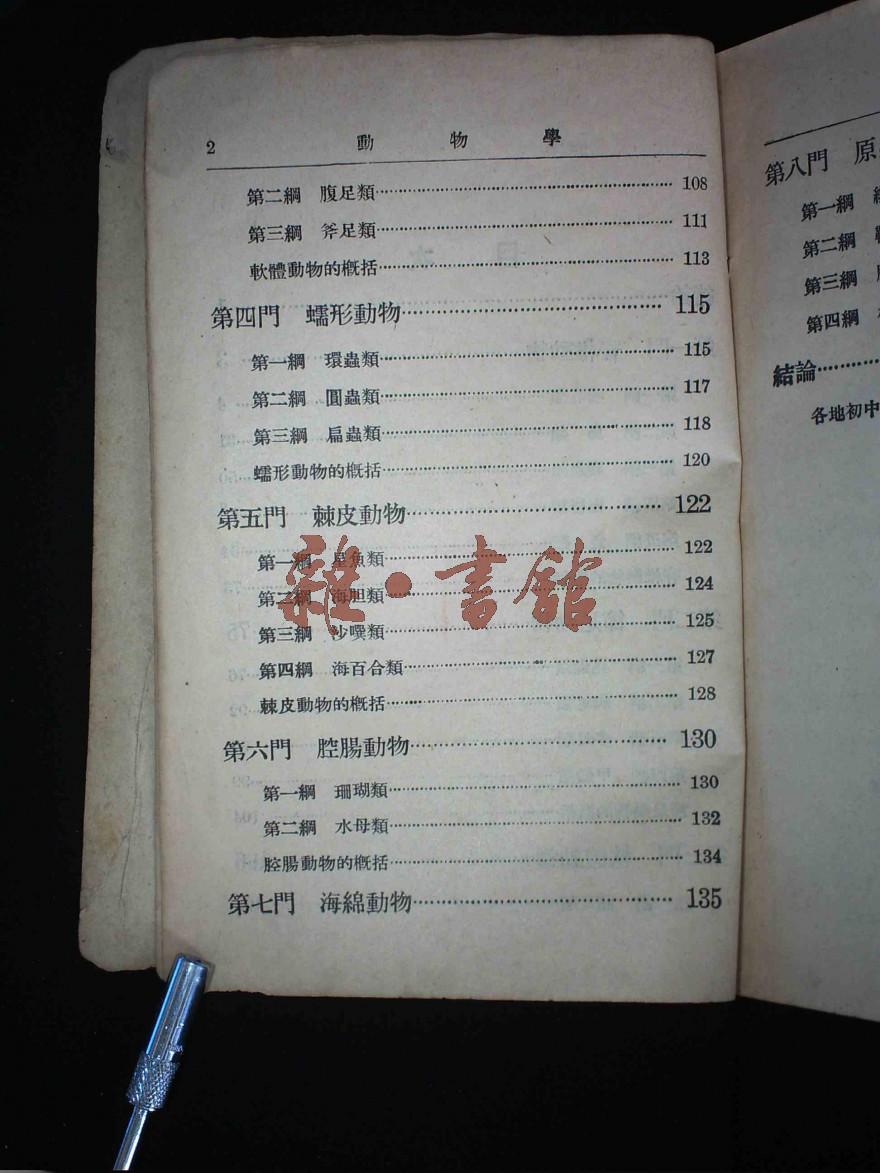 2 動物學
第二綱 腹足類 108
第三綱 斧足類 111
軟體動物的概括 113
第四門 蠕形動物 115
第一綱 環蟲類 115
第二綱 圓蟲類 117
第三綱 扁蟲類 118
蠕形動物的概括 120
第五門 棘皮動物 122
第一綱 星魚類 122
第二綱 海胆類 124
第三綱 沙噀類 125
第四綱 海百合類 127
棘皮動物的概括 128
第六門 腔腸動物 130
第一綱 珊瑚類 130
第二綱 水母類 132
腔腸動物的概括 134
第七門 海綿動物 135
雜·書館
第八門 原
第一綱
第二綱
第三綱
第四綱
結論
各地初中